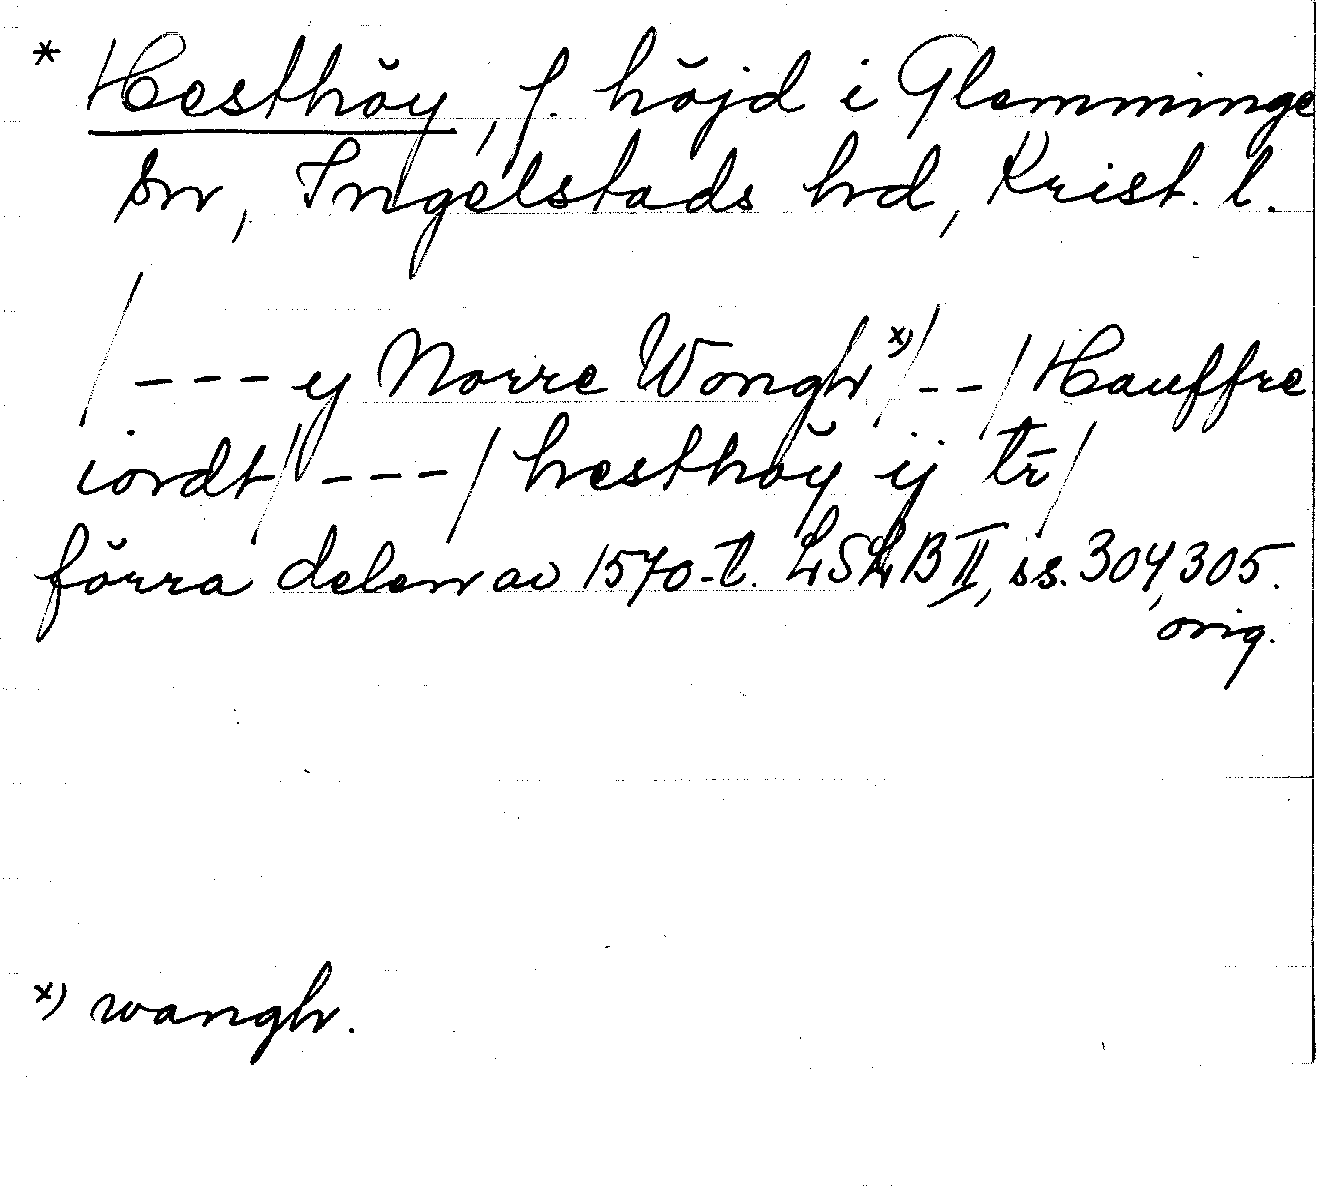 * Hesthöy, f. höjd i Glemminge
sn, Ingelstads hd, Krist. l.
/ - - - y Norre Wongh x) / - - / Hauffre
iordt / - - - / hesthöy ij tr̄ /
förra delen av 1570-t. LSLB II, ss. 304, 305.
orig.
x) wangh.